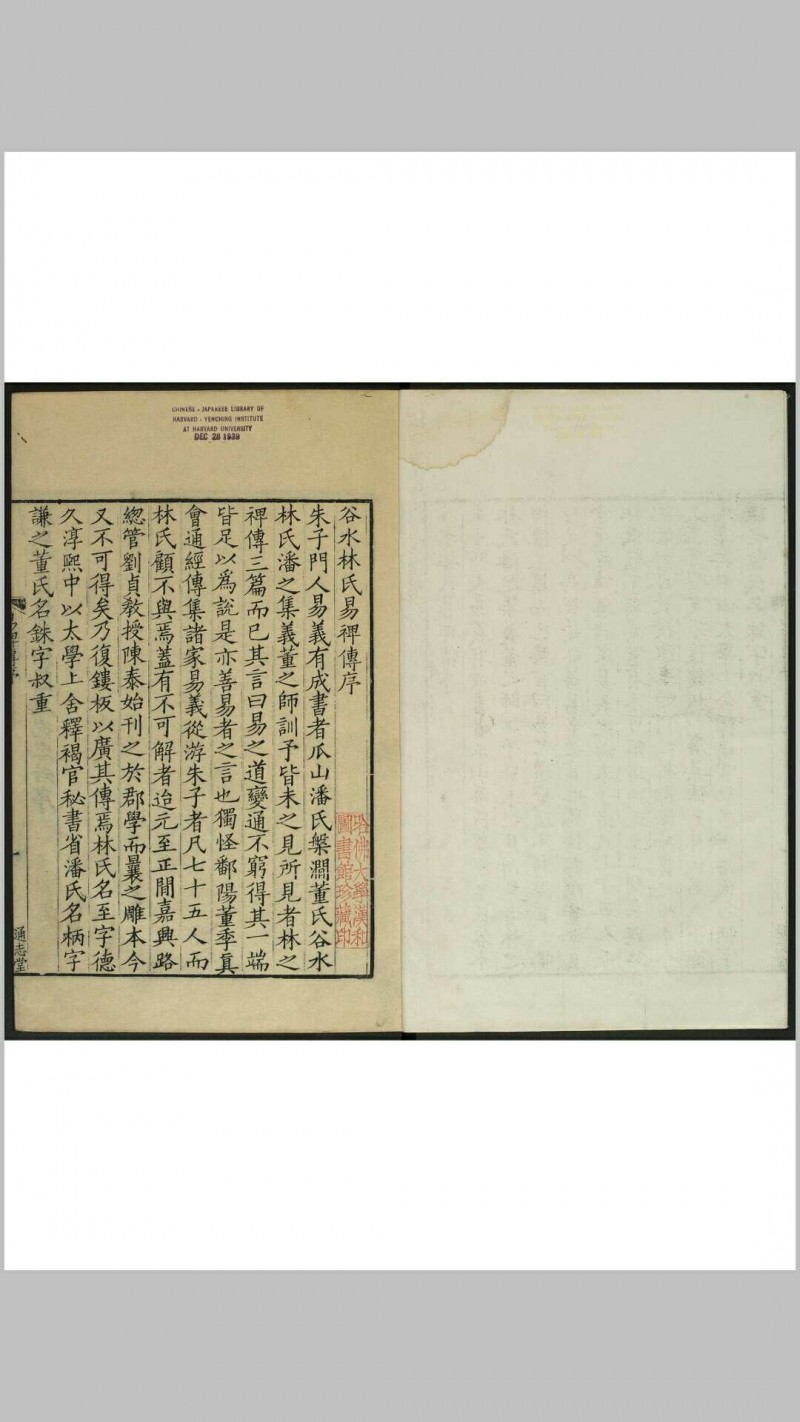 CHINESE - JAPANESE LIBRARY OF
HARVARD - YENCHING INSTITUTE
AT HARVARD UNIVERSITY
DEC 28 1939
谷水林氏易禆傳序
朱子門人易義有成書者瓜山潘氏槃澗董氏谷水
林氏潘之集義董之師訓予皆未之見所見者林之
禆傳三篇而已其言曰易之道變通不窮得其一端
皆足以爲説是亦善易者之言也獨怪鄱陽董季真
會通經傳集諸家易義從游朱子者凡七十五人而
林氏顧不與焉蓋有不可解者迨元至正間嘉興路
緫管劉貞教授陳泰始刊之於郡學而曩之雕本今
又不可得矣乃復鏤板以廣其傳焉林氏名至字德
久淳熙中以太學上舍釋褐官秘書省潘氏名柄字
謙之董氏名銖字叔重
哈佛大學漢和
圖書館珍藏印
通志堂